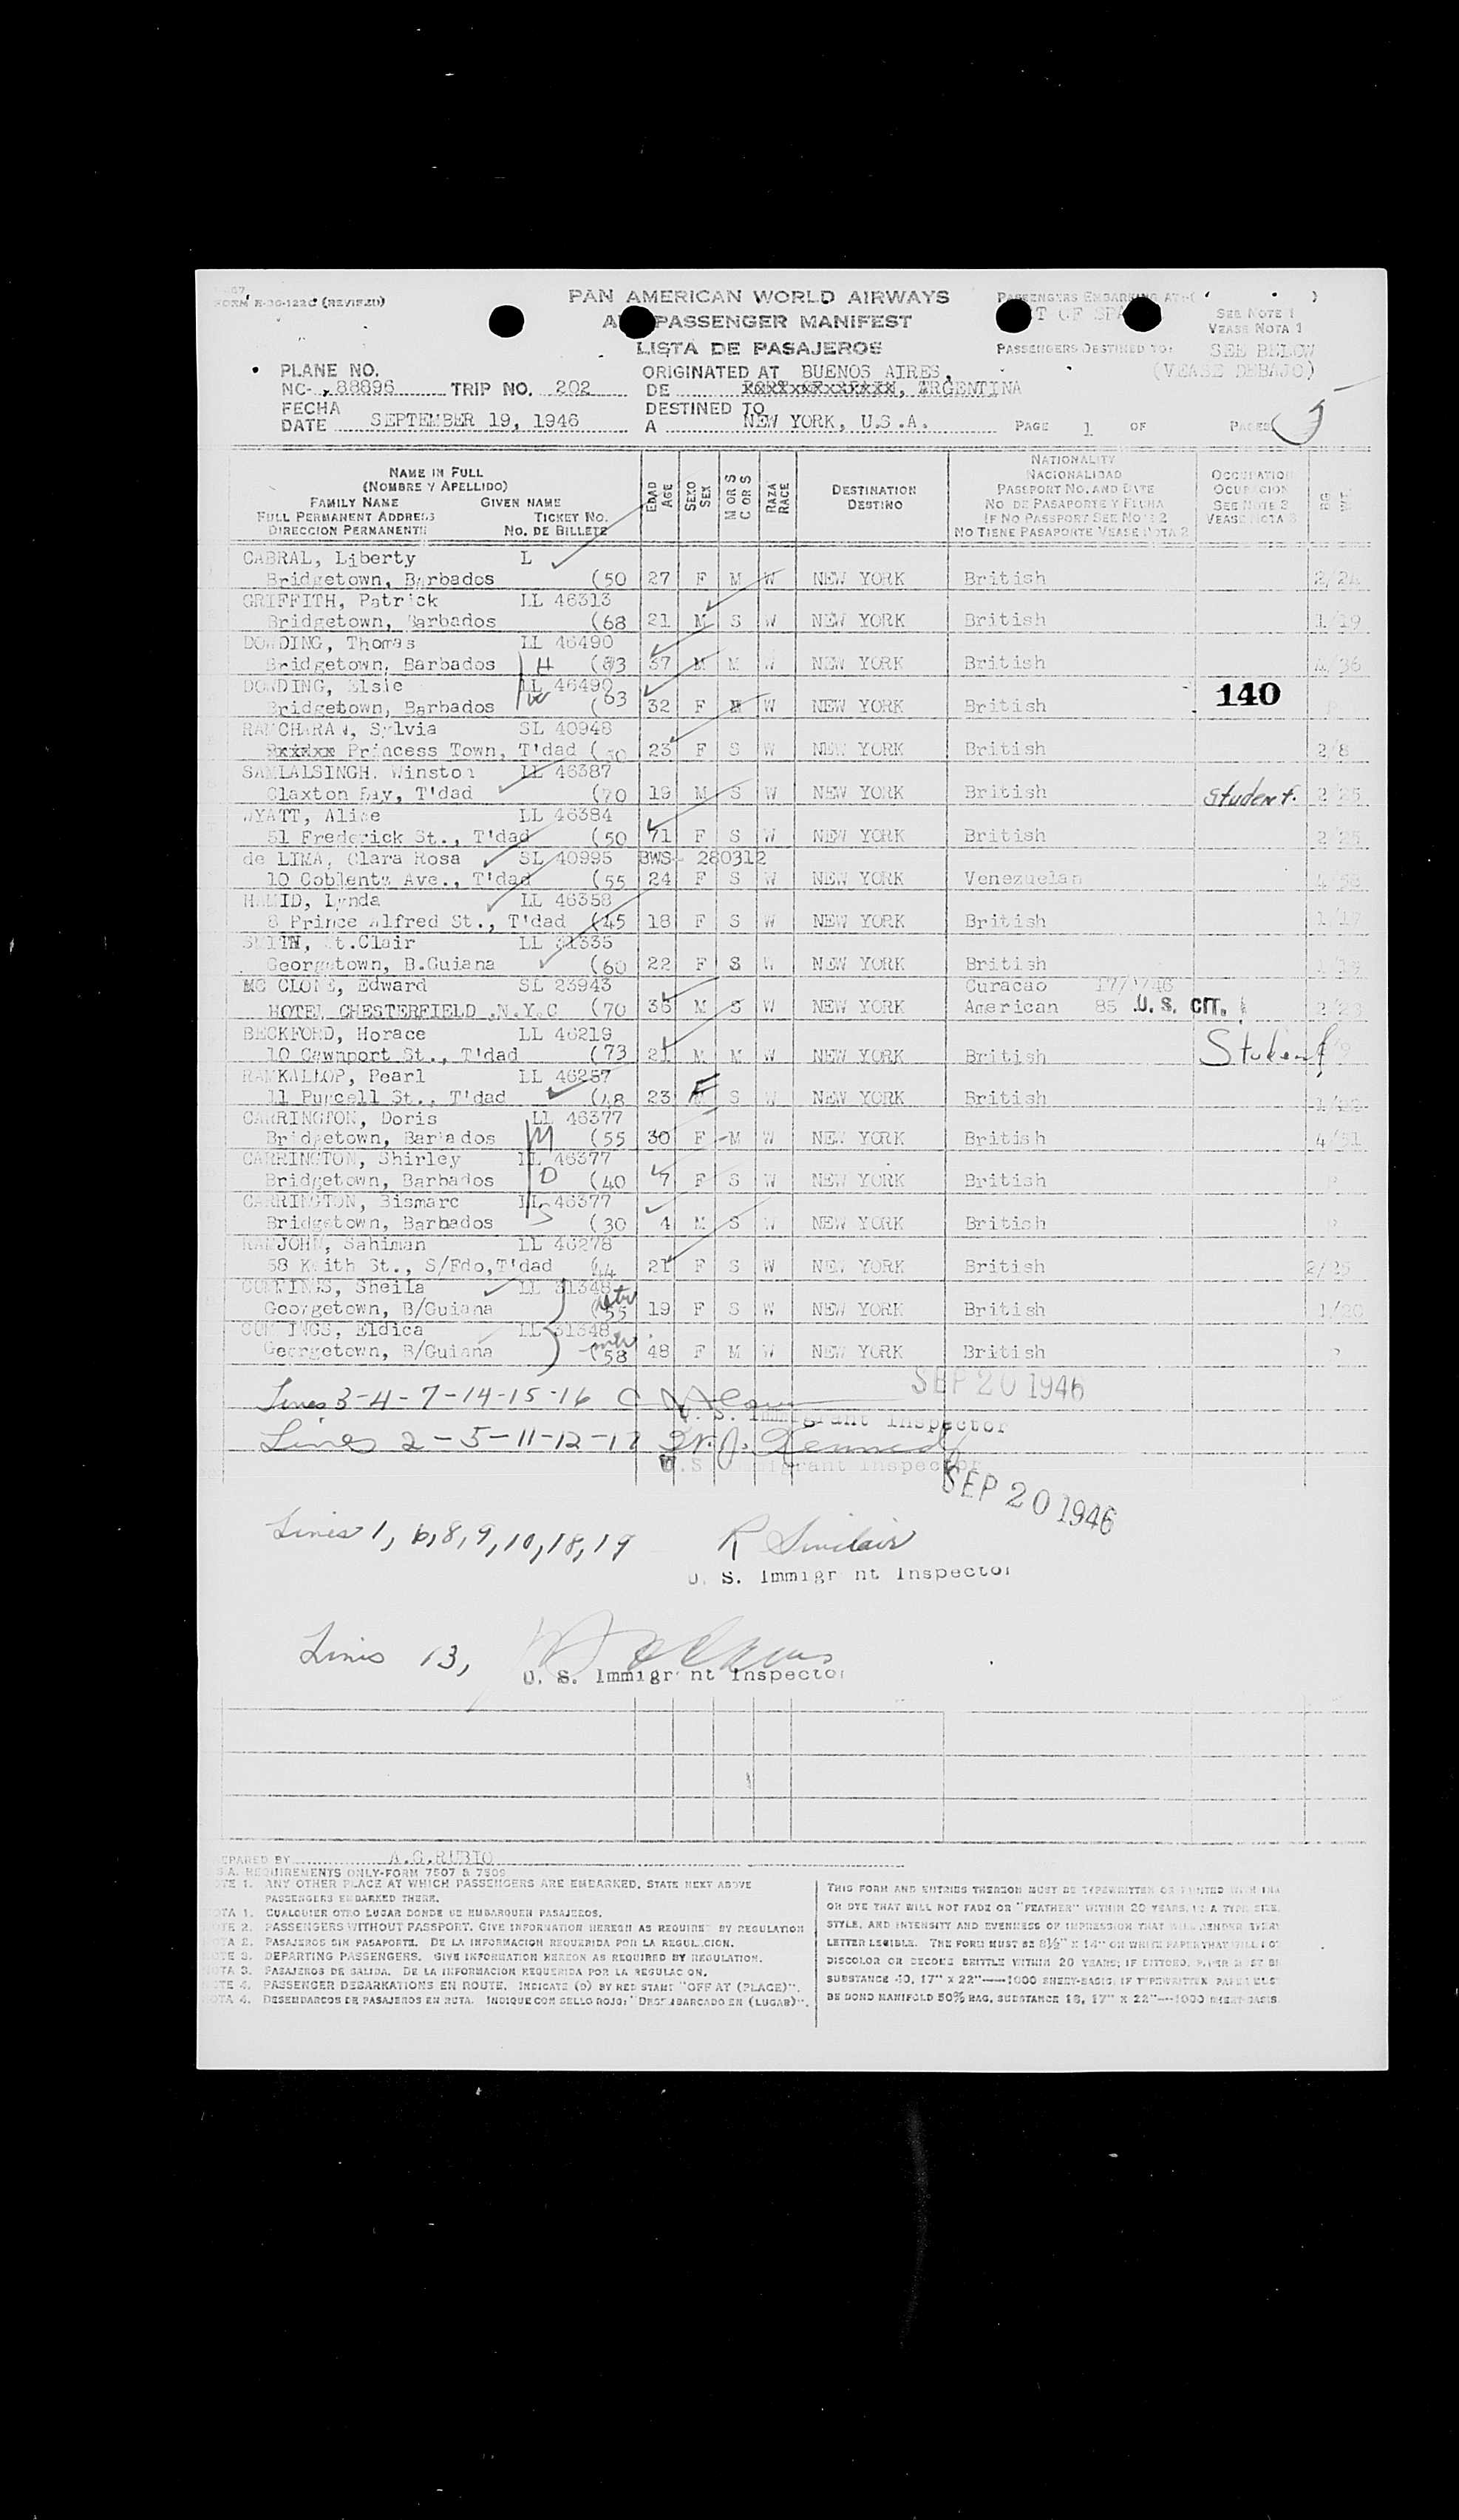 FORM R-OG-122C (REVISED)
PAN AMERICAN WORLD AIRWAYS
PASSENGERS EMBARKING AT: ( )
PASSENGER MANIFEST
T OF SPA
SEE NOTE 1
VEASE NOTA 1
LISTA DE PASAJEROS
PASSENGERS DESTINED TO:
SEE BELOW
(VEASE DEBAJO)
PLANE NO.
NC- 88896 TRIP NO. 202
ORIGINATED AT BUENOS AIRES,
DE ARGENTINA
FECHA
DATE SEPTEMBER 19, 1946
DESTINED TO
A NEW YORK, U.S.A.
PAGE 1 OF PAGES 5
NAME IN FULL
(NOMBRE Y APELLIDO)
FAMILY NAME GIVEN NAME
FULL PERMANENT ADDRESS TICKET NO.
DIRECCION PERMANENTE NO. DE BILLETE
EDAD AGE
SEXO SEX
M OR S C OR S
RAZA RACE
DESTINATION
DESTINO
NATIONALITY
NACIONALIDAD
PASSPORT NO. AND DATE
NO. DE PASAPORTE Y FECHA
IF NO PASSPORT SEE NOTE 2
NO TIENE PASAPORTE VEASE NOTA 2
OCCUPATION
OCUPACION
SEE NOTE 3
VEASE NOTA 3
CABRAL, Liberty L
Bridgetown, Barbados (50 27 F M W NEW YORK British 2/24
GRIFFITH, Patrick LL 46313
Bridgetown, Barbados (68 21 M S W NEW YORK British 1/19
DOWDING, Thomas LL 46490
Bridgetown, Barbados H (83 37 M M W NEW YORK British 4/36
DOWDING, Elsie LL 46490
Bridgetown, Barbados W (63 32 F M W NEW YORK British
140
RAMCHARAN, Sylvia SL 40948
Princess Town, T'dad (50 23 F S W NEW YORK British 2/8
SAMLALSINGH, Winston LL 46387
Claxton Bay, T'dad (70 19 M S W NEW YORK British Student. 2/25
WYATT, Alice LL 46384
51 Frederick St., T'dad (50 71 F S W NEW YORK British 2/25
de LIMA, Clara Rosa SL 40995 BWS- 280312
10 Coblentz Ave., T'dad (55 24 F S W NEW YORK Venezuelan 4/58
HAMID, Lynda LL 46358
8 Prince Alfred St., T'dad (45 18 F S W NEW YORK British 1/17
SMITH, St.Clair LL 31335
Georgetown, B.Guiana (60 22 F S W NEW YORK British
MC CLONE, Edward SL 23943 Curacao
HOTEL CHESTERFIELD .N.Y.C (70 36 M S W NEW YORK American 85 U.S. CIT. 2/23
BECKFORD, Horace LL 46219
10 Cawnport St., T'dad (73 21 M M W NEW YORK British Student
RAMKALLOP, Pearl LL 46257
11 Purcell St., T'dad (48 23 F S W NEW YORK British
CARRINGTON, Doris LL 46377
Bridgetown, Barbados M (55 30 F M W NEW YORK British 4/51
CARRINGTON, Shirley LL 46377
Bridgetown, Barbados D (40 7 F S W NEW YORK British
CARRINGTON, Bismarc LL 46377
Bridgetown, Barbados S (30 4 M S W NEW YORK British
RAMJOHN, Sahiman LL 46278
58 Keith St., S/Fdo,T'dad (44 21 F S W NEW YORK British 2/25
CUMMINGS, Sheila LL 31348
Georgetown, B/Guiana (55 19 F S W NEW YORK British 4/30
CUMMINGS, Eldica LL 31348
Georgetown, B/Guiana (58 48 F M W NEW YORK British
SEP 20 1946
Lines 3-4-7-14-15-16
U. S. Immigrant Inspector
Lines 2-5-11-12-17 Kennedy
U.S. Immigrant Inspector
SEP 20 1946
Lines 1, 6, 8, 9, 10, 18, 19 R Sinclair
U. S. Immigrant Inspector
Lines 13,
U. S. Immigrant Inspector
PREPARED BY A.G.RUBIO
U.S.A. REQUIREMENTS ONLY-FORM 7507 & 7509
NOTE 1. ANY OTHER PLACE AT WHICH PASSENGERS ARE EMBARKED, STATE NEXT ABOVE
PASSENGERS EMBARKED THERE.
NOTA 1. CUALQUIER OTRO LUGAR DONDE SE EMBARQUEN PASAJEROS.
NOTE 2. PASSENGERS WITHOUT PASSPORT. GIVE INFORMATION HEREON AS REQUIRED BY REGULATION
NOTA 2. PASAJEROS SIN PASAPORTE. DE LA INFORMACION REQUERIDA POR LA REGULACION.
NOTE 3. DEPARTING PASSENGERS. GIVE INFORMATION HEREON AS REQUIRED BY REGULATION.
NOTA 3. PASAJEROS DE SALIDA. DE LA INFORMACION REQUERIDA POR LA REGULACION.
NOTE 4. PASSENGER DEBARKATIONS EN ROUTE. INDICATE (D) BY RED STAMP "OFF AT (PLACE)".
NOTA 4. DESEMBARCOS DE PASAJEROS EN RUTA. INDIQUE CON SELLO ROJO: "DESEMBARCADO EN (LUGAR)".
THIS FORM AND ENTRIES THEREON MUST BE TYPEWRITTEN OR PRINTED WITH INK
OR DYE THAT WILL NOT FADE OR "FEATHER" WITHIN 20 YEARS, IN A TYPE SIZE,
STYLE, AND INTENSITY AND EVENNESS OF IMPRESSION THAT WILL RENDER EVERY
LETTER LEGIBLE. THE FORM MUST BE 8½" X 14" ON WHITE PAPER THAT WILL NOT
DISCOLOR OR BECOME BRITTLE WITHIN 20 YEARS; IF DITTOED, PAPER MUST BE
SUBSTANCE 40, 17" X 22"—1000 SHEET-BASIS; IF TYPEWRITTEN PAPER MUST
BE BOND MANIFOLD 50% RAG, SUBSTANCE 18, 17" X 22"—1000 SHEET-BASIS